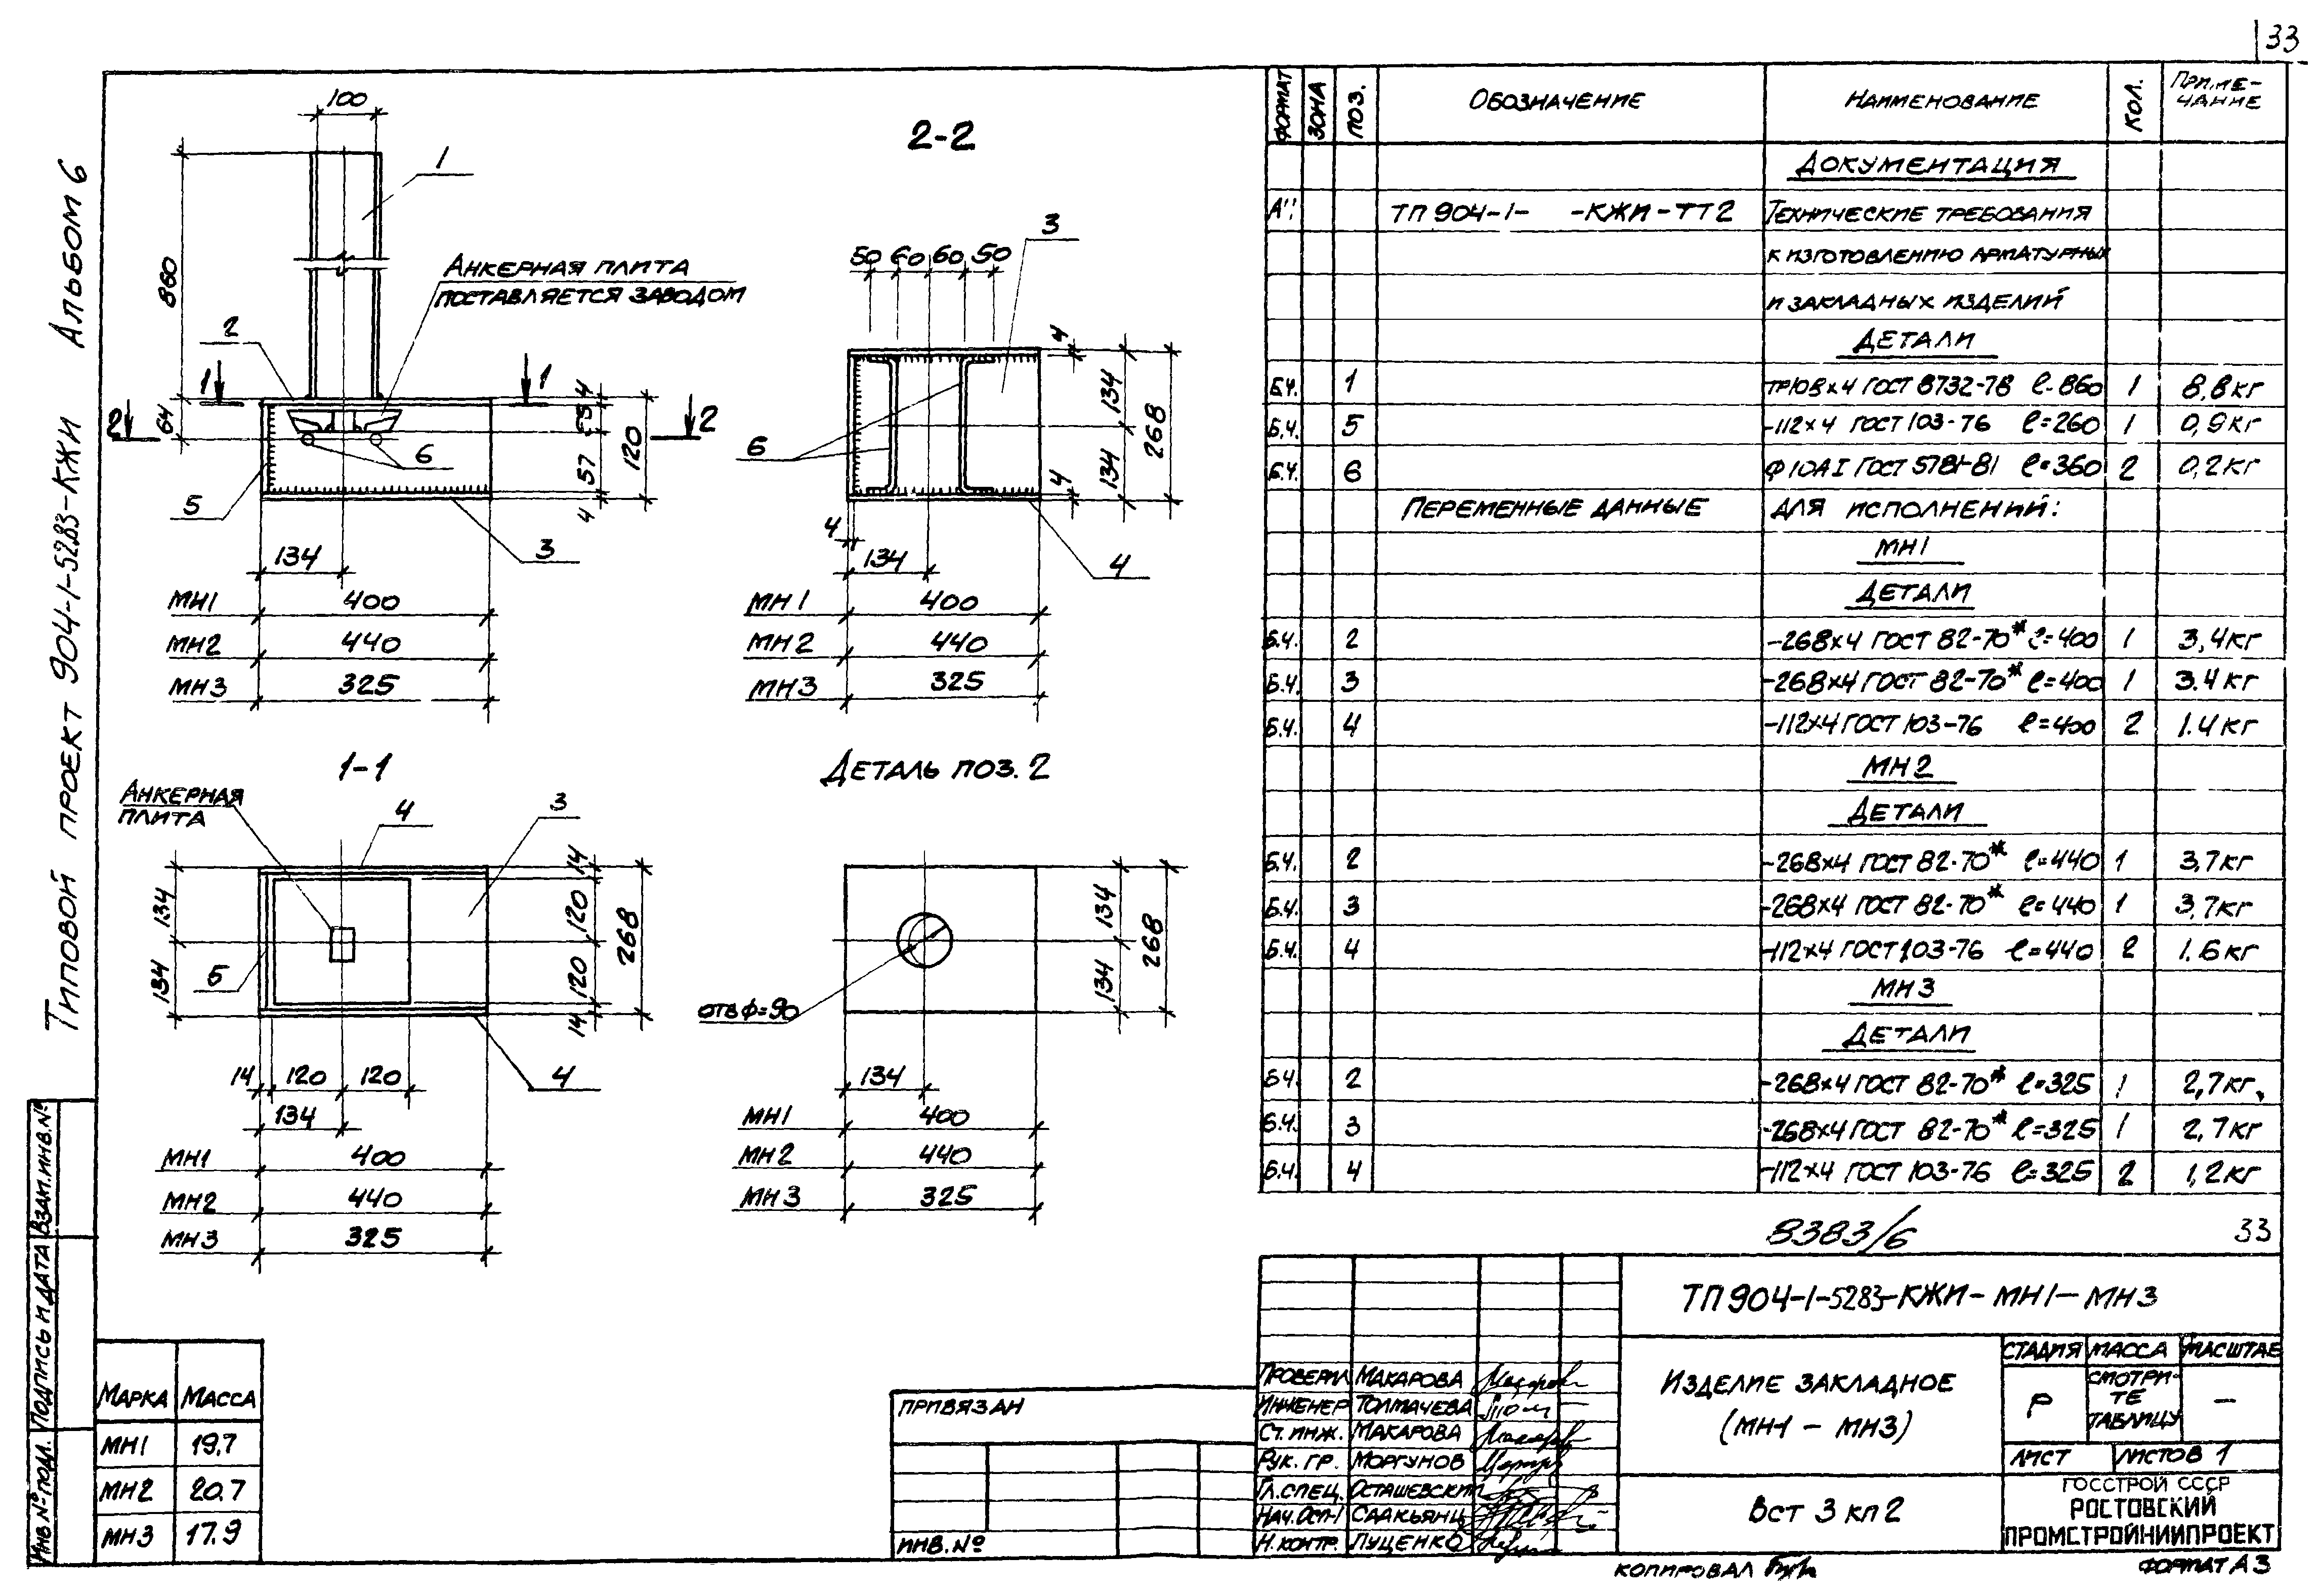 33
Типовой проект 904-1-52.83-КЖИ Альбом 6
100
1
860
Анкерная плита
поставляется заводом
2
1 1
64
2 2
4
57
120
4
6
5
3
134
МН1 400
МН2 440
МН3 325
2-2
3
50 60 60 50
4
134
268
134
4
6
4
134
4
МН1 400
МН2 440
МН3 325
1-1
Анкерная
плита
4
3
14
134
120
268
134
120
14
5
14 120 120
4
134
МН1 400
МН2 440
МН3 325
Деталь поз. 2
134
268
134
отв ф=90
134
МН1 400
МН2 440
МН3 325
Формат Зона Поз. Обозначение Наименование Кол. Примечание
Документация
ТП 904-1- -КЖИ-ТТ2 Технические требования
к изготовлению арматурных
и закладных изделий
Детали
Б.Ч. 1 тр108х4 ГОСТ 8732-78 ℓ-860 1 8,8кг
Б.Ч. 5 -112х4 ГОСТ 103-76 ℓ=260 1 0,9кг
Б.Ч. 6 Ф10АI ГОСТ 5781-81 ℓ=360 2 0,2кг
Переменные данные для исполнений:
МН1
Детали
Б.Ч. 2 -268х4 ГОСТ 82-70* ℓ=400 1 3,4кг
Б.Ч. 3 -268х4 ГОСТ 82-70* ℓ=400 1 3.4кг
Б.Ч. 4 -112х4 ГОСТ 103-76 ℓ=400 2 1.4кг
МН2
Детали
Б.Ч. 2 -268х4 ГОСТ 82-70* ℓ=440 1 3,7кг
Б.Ч. 3 -268х4 ГОСТ 82-70* ℓ=440 1 3,7кг
Б.Ч. 4 -112х4 ГОСТ 103-76 ℓ=440 2 1.6кг
МН3
Детали
Б.Ч. 2 -268х4 ГОСТ 82-70* ℓ=325 1 2,7кг
Б.Ч. 3 -268х4 ГОСТ 82-70* ℓ=325 1 2,7кг
Б.Ч. 4 -112х4 ГОСТ 103-76 ℓ=325 2 1,2кг
8383/6 33
ТП 904-1-5283-КЖИ-МН1-МН3
Проверил Макарова
Инженер Толмачева
Ст. инж. Макарова
Рук. гр. Моргунов
Гл. спец. Осташевский
Нач. ОСП-1 Саакьянц
Н. контр. Луценко
Изделие закладное
(МН1 - МН3)
Стадия Масса Масштаб
Р Смотрите таблицу —
Лист Листов 1
Вст 3 кп 2
Госстрой СССР
РОСТОВСКИЙ
ПРОМСТРОЙНИИПРОЕКТ
Копировал Формат А3
Привязан
Инв. №
Марка Масса
МН1 19,7
МН2 20.7
МН3 17.9
Инв № подл. Подпись и дата Взам. инв. №